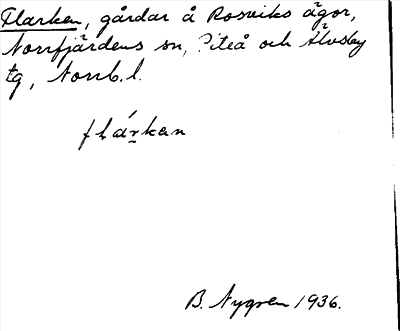 Flarken, gårdar å Rosviks ägor,
Norrfjärdens sn, Piteå och Älvsby
tg, Norrb. l.
flárkan
B. Nygren 1936.